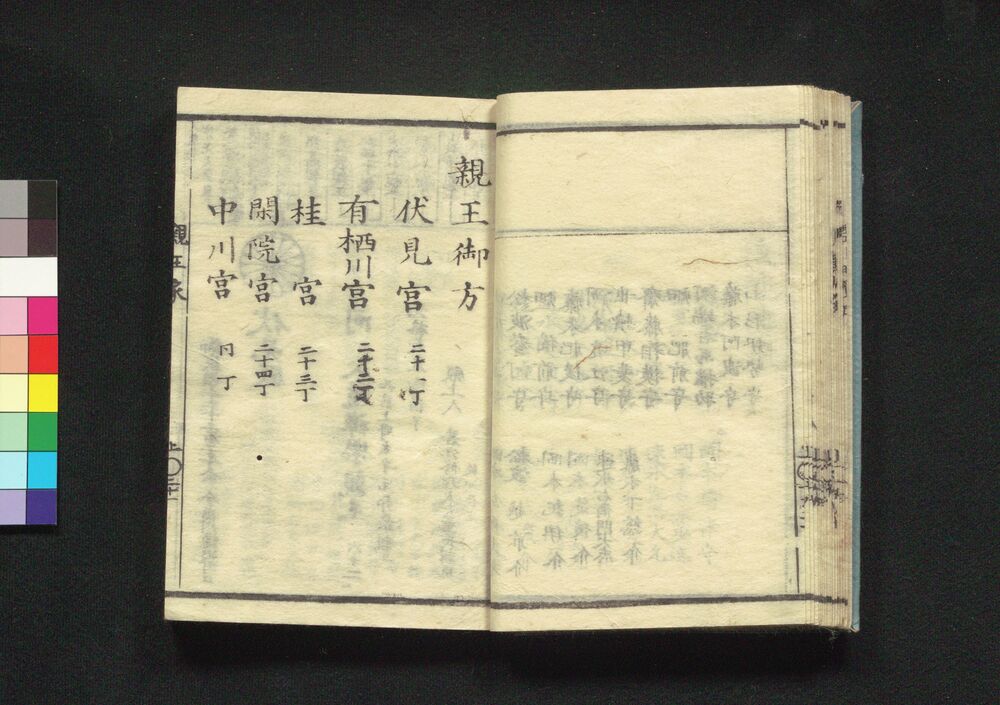 親王御方
伏見宮 二十一丁
有栖川宮 二十二丁
桂宮 二十三丁
閑院宮 二十四丁
中川宮 同丁
親王家